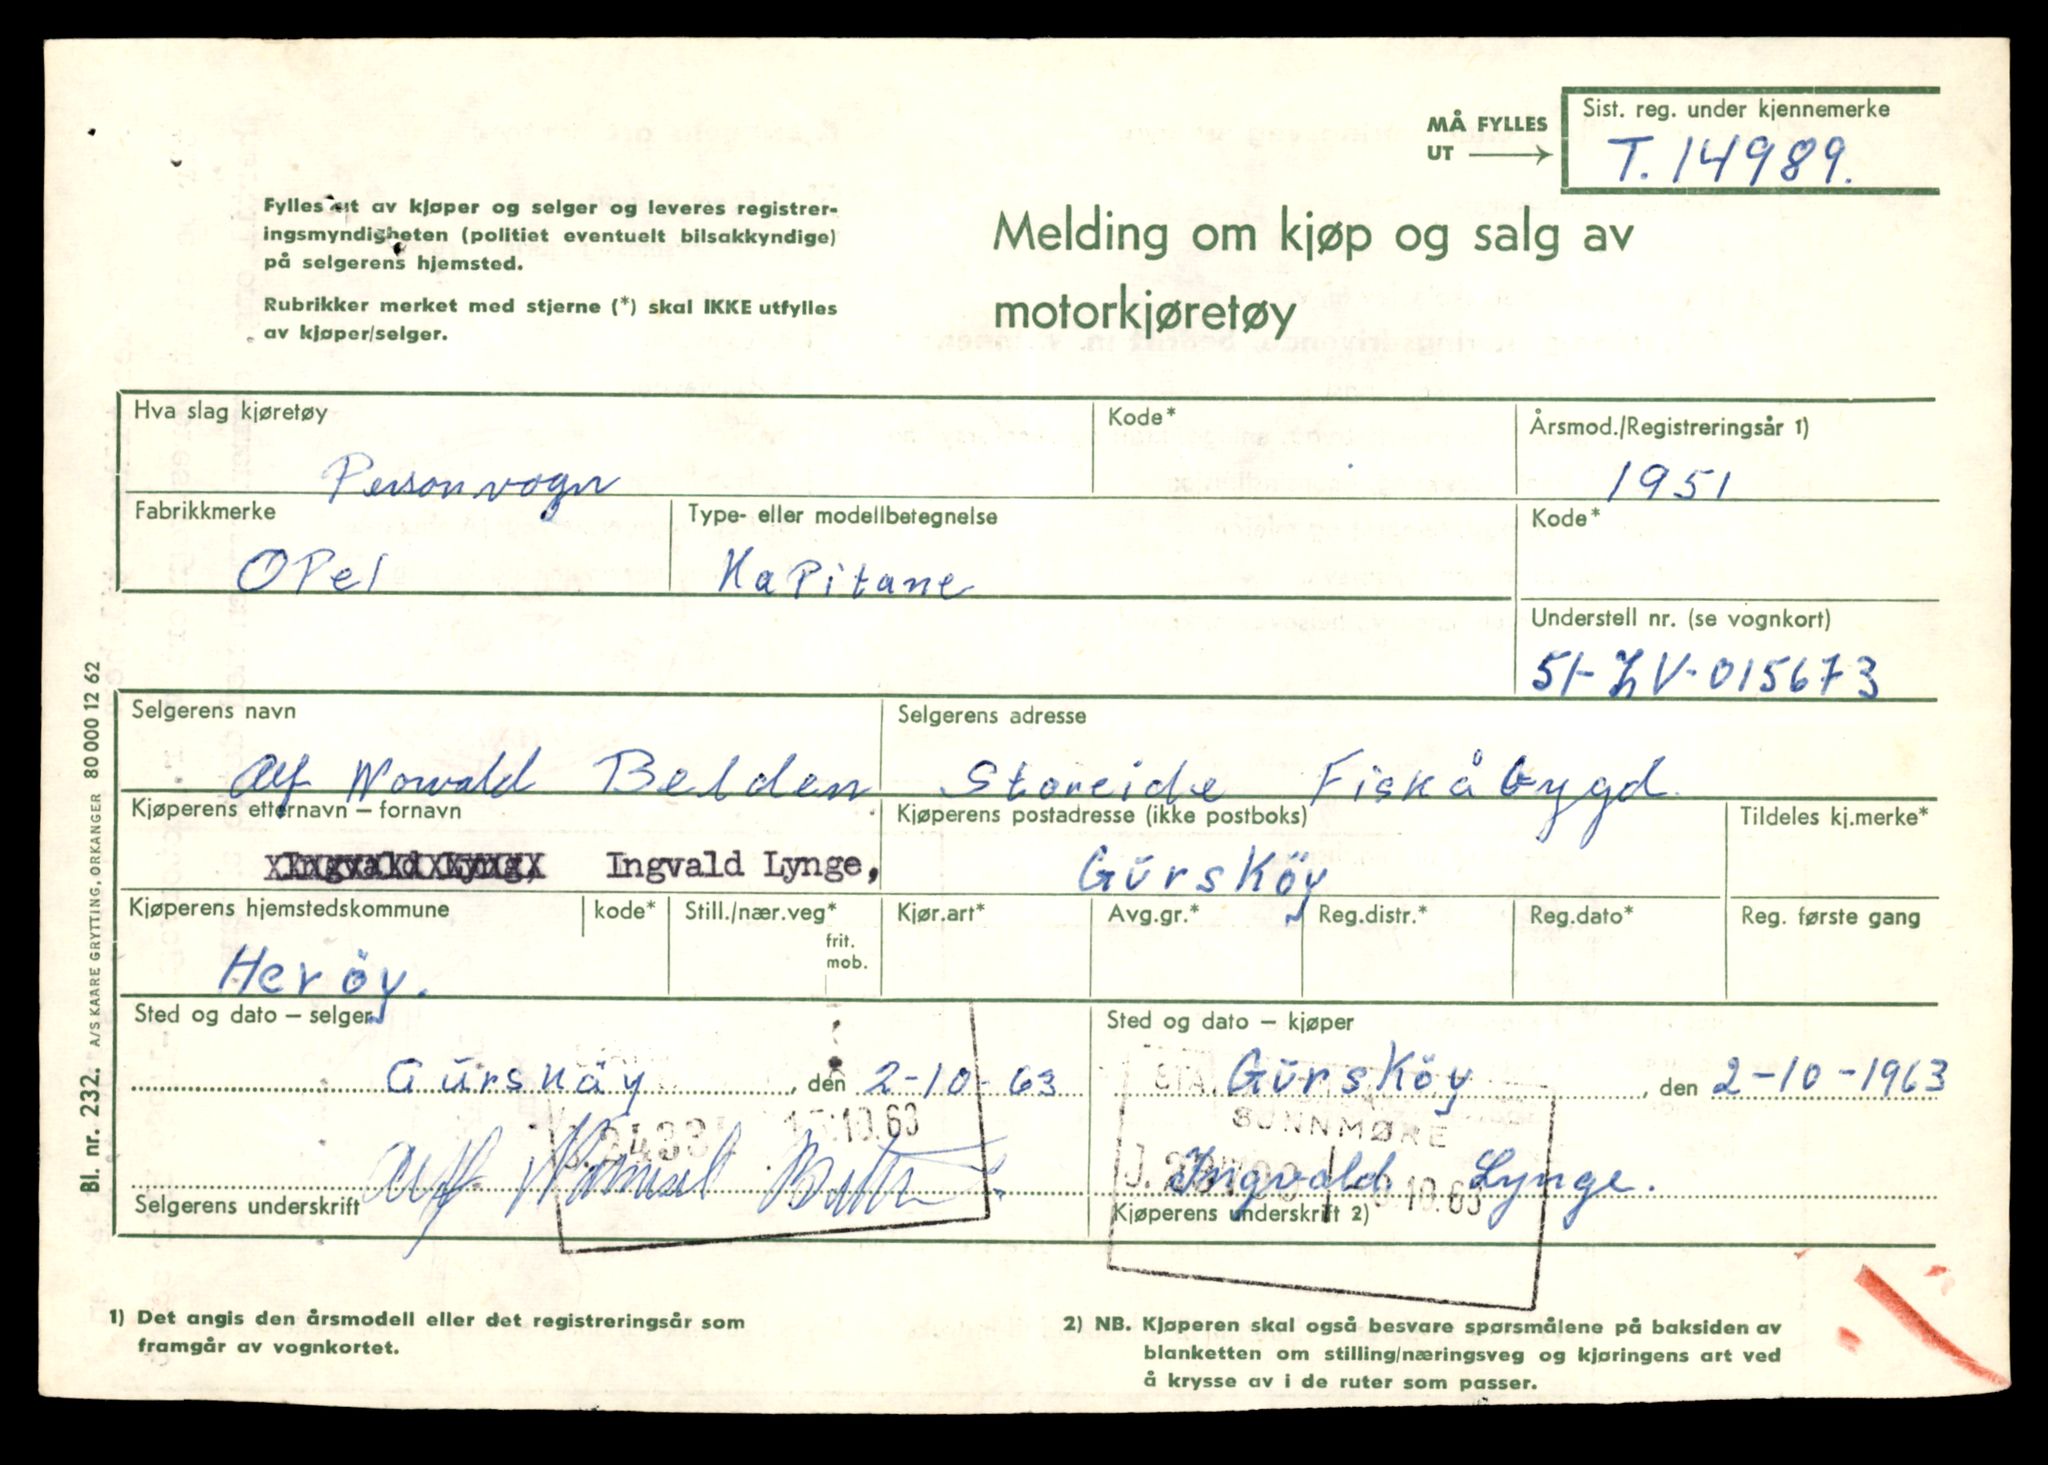 MÅ FYLLES
UT
Sist. reg. under kjennemerke
T. 14989.
Fylles ut av kjøper og selger og leveres registrer-
ingsmyndigheten (politiet eventuelt bilsakkyndige)
på selgerens hjemsted.
Rubrikker merket med stjerne (*) skal IKKE utfylles
av kjøper/selger.
Melding om kjøp og salg av
motorkjøretøy
Hva slag kjøretøy
Kode*
Årsmod./Registreringsår 1)
Personvogn
1951
Fabrikkmerke
Type- eller modellbetegnelse
Kode*
OPel
KaPitane
Understell nr. (se vognkort)
51-ZV-015673
Selgerens navn
Selgerens adresse
Alf Belden
Storeide Fiskåbygd
Kjøperens etternavn – fornavn
Kjøperens postadresse (ikke postboks)
Tildeles kj.merke*
Ingvald Lynge,
Gursköy
Kjøperens hjemstedskommune
kode*
Still./nær.veg*
frit.
mob.
Kjør.art*
Avg.gr.*
Reg.distr.*
Reg.dato*
Reg. første gang
Heröy.
Sted og dato – selger
Sted og dato – kjøper
Gursköy, den 2-10-63
Gursköy, den 2-10-1963
SUNNMØRE
10.63
10.63
Alf
Ingvald Lynge.
Selgerens underskrift
Kjøperens underskrift 2)
1) Det angis den årsmodell eller det registreringsår som
framgår av vognkortet.
2) NB. Kjøperen skal også besvare spørsmålene på baksiden av
blanketten om stilling/næringsveg og kjøringens art ved
å krysse av i de ruter som passer.
Bl. nr. 232. A/S KAARE GRYTTING, ORKANGER 80 000 12 62